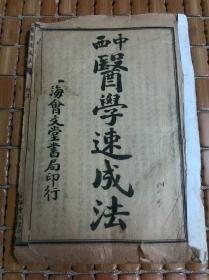 中西
醫學速成法
上海會文堂書局印行